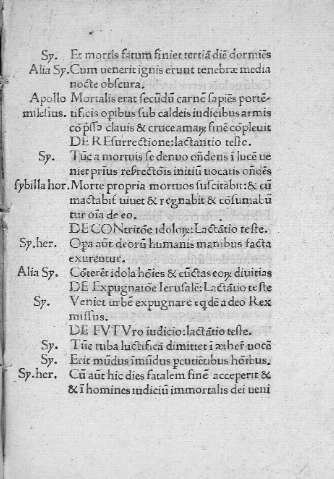 Sy. Et mortis fatum finiet tertiā diē dormiēs
Alia Sy. Cum uenerit ignis erunt tenebræ media
nocte obscura.
Apollo Mortalis erat secūdū carnē sapiēs portē⸗
milesius. tificis opibus sub caldeis iudicibus armis
cō p̄sso clauis & cruce amaꝝ finē cōpleuit
DE REsurrectione: lactantio teste.
Sy. Tūc a mortuis se denuo oñdens ī lucē ue
niet prius resrectōis initiū uocatis oñdēs
sybilla hor. Morte propria mortuos suscitabit: & cū
mactabit uiuet & regnabit & cōsumabū
tur oīa de eo.
DE CONtritōe idoloꝝ: Lactātio teste.
Sy. her. Opa aūt deorū humanis manibus facta
exurentur.
Alia Sy. Cōterēt idola hoīes & cūctas eoꝝ diuitias
DE Expugnatōe Ierusalē: Lactātio teste
Sy. Veniet urbē expugnare eqdē a deo Rex
missus.
DE FVTVro iudicio: lactātio teste.
Sy. Tūc tuba luctificā dimittet ī æther uocē
Sy. Erit mūdus īmūdus
Sy. her. Cū aūt hic dies fatalem finē acceperit &
& ī homines iudiciū immortalis dei ueni